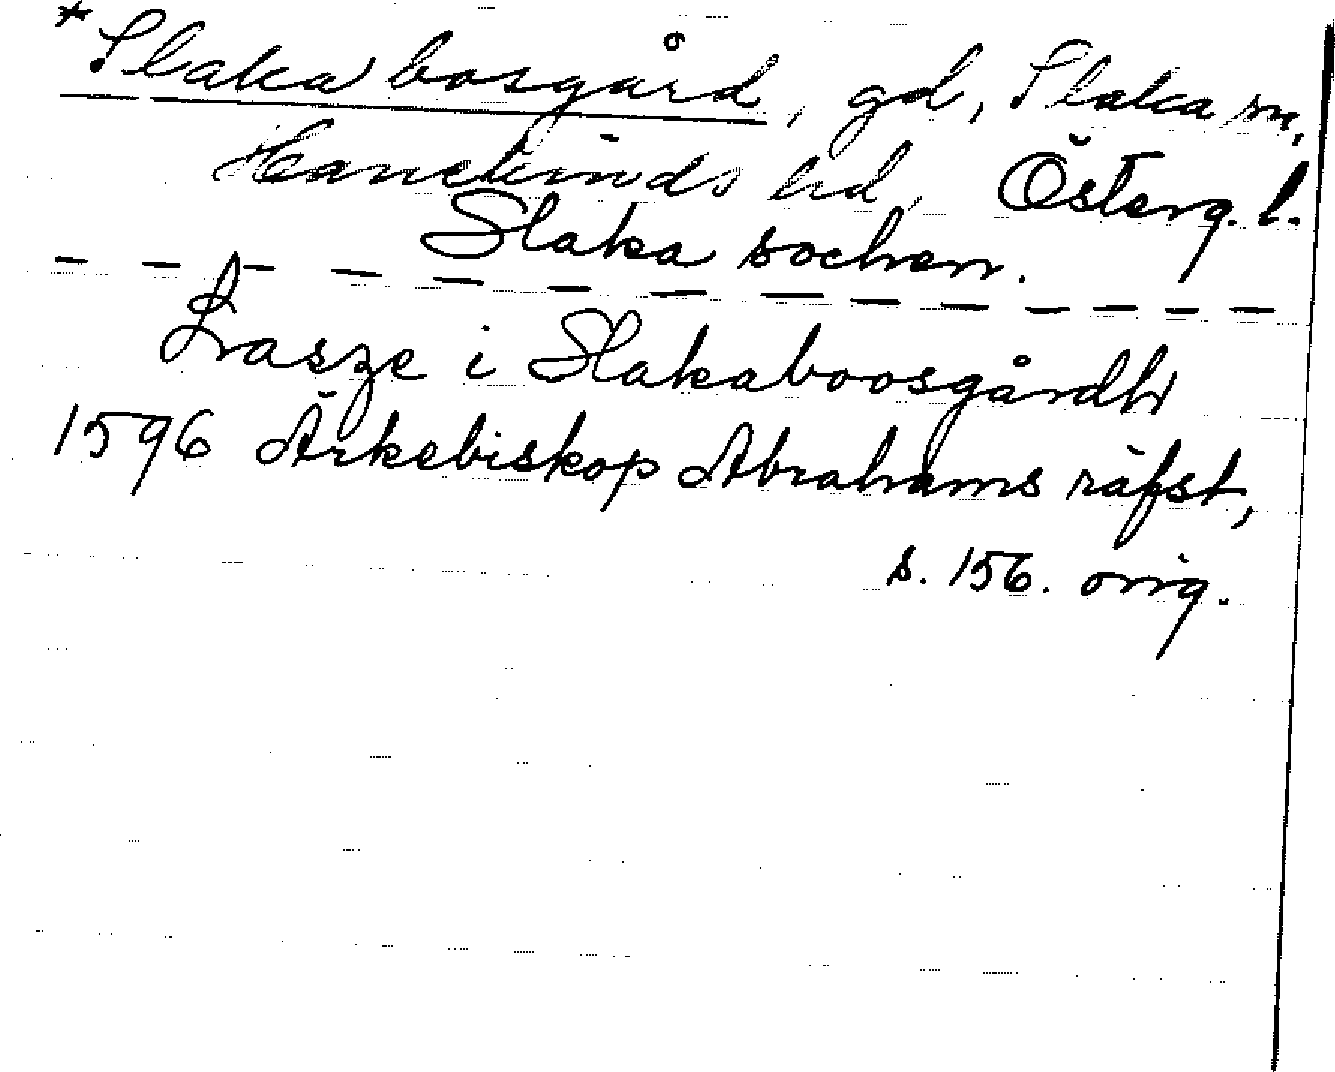 *Slaka bosgård, gd, Slaka sn,
Hanekinds hd, Österg. l.
Slaka socken.
Lrasze i Slakaboosgårdh
1596 Ärkebiskop Abrahams räfst,
s. 156. orig.